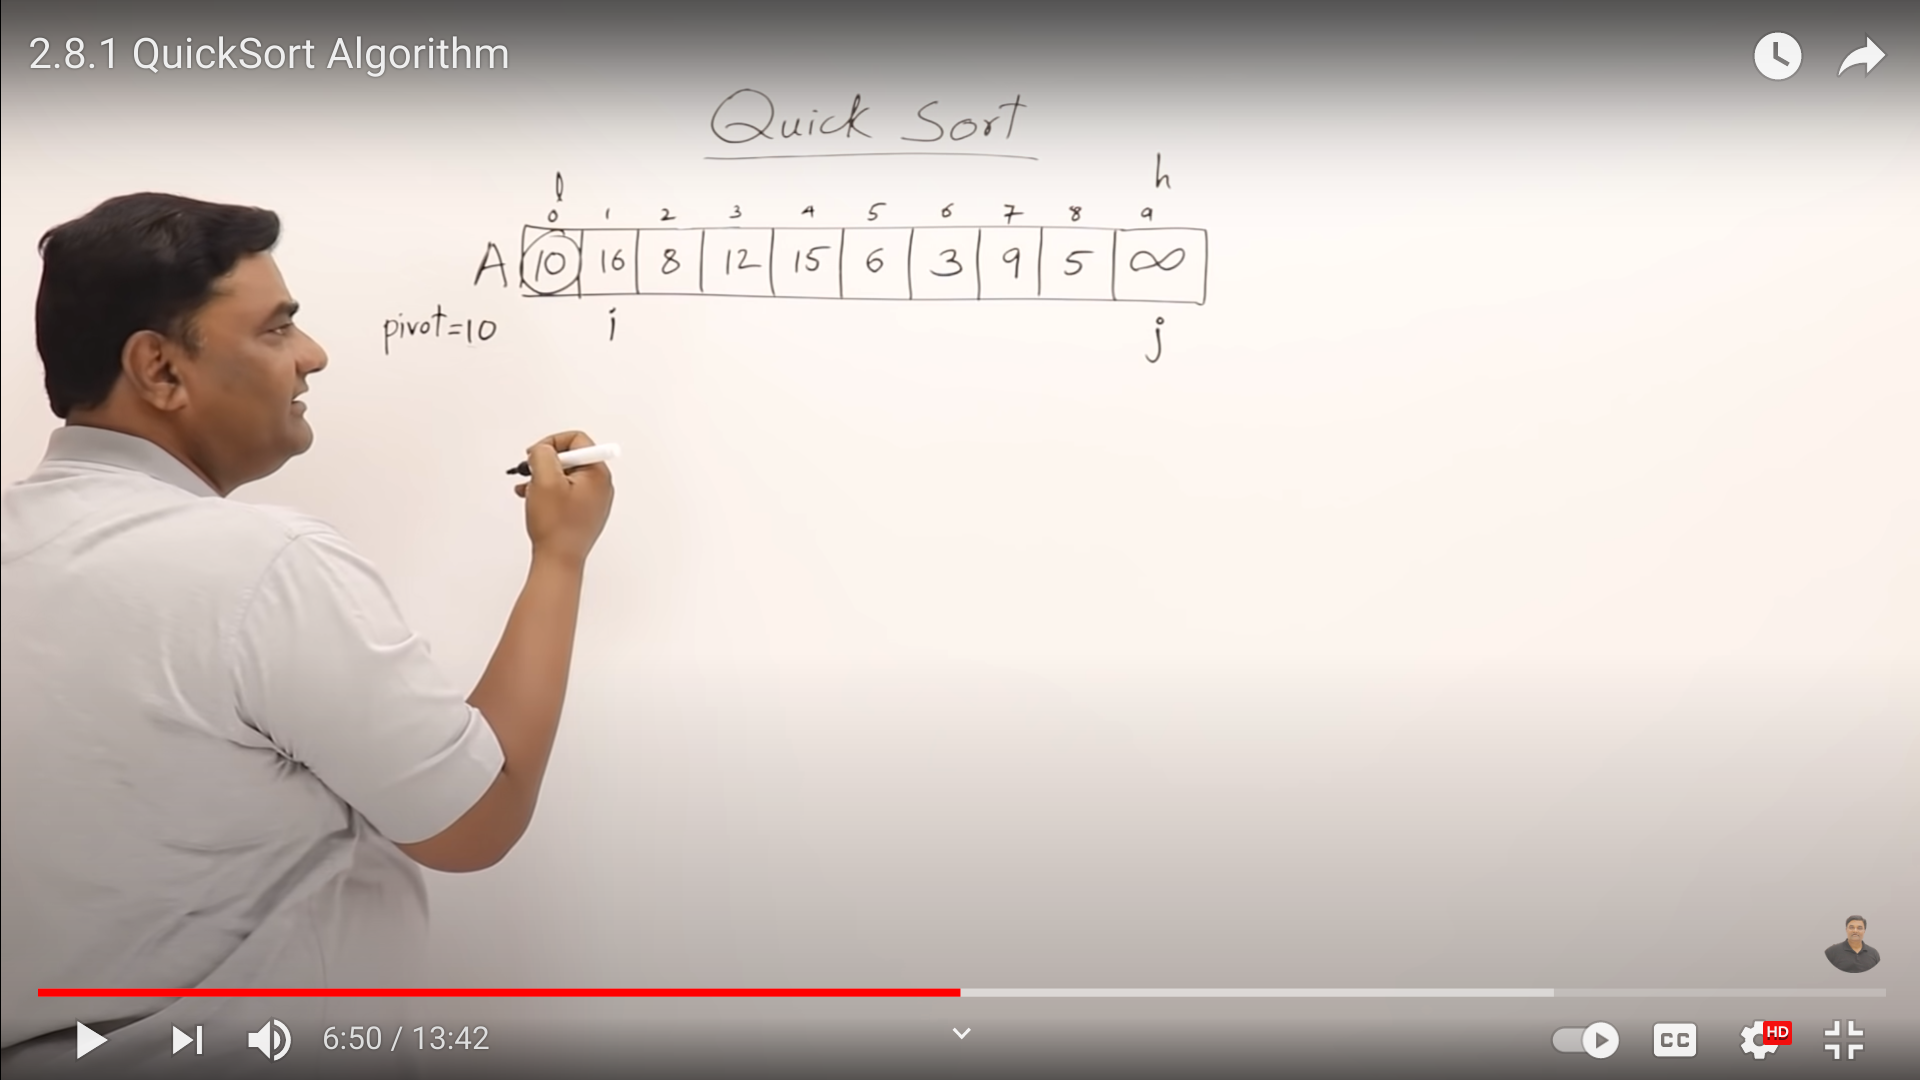 2.8.1 QuickSort Algorithm
Quick Sort
l h
0 1 2 3 4 5 6 7 8 9
A 10 16 8 12 15 6 3 9 5 ∞
pivot=10 i j
6:50 / 13:42 CC HD